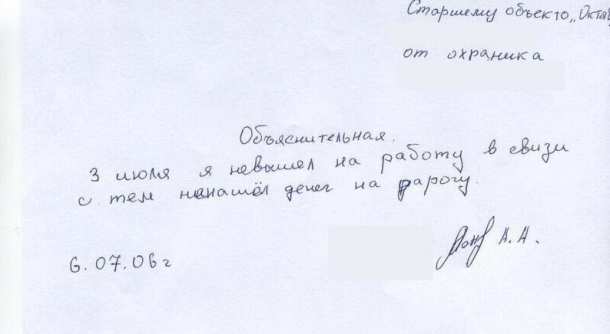 Старшему объекто „Окта
от охраника
Объяснительная.
3 июля я невышел на работу в свизи
с тем ненашёл денег на дарогу.
6.07.06 г
А.А.